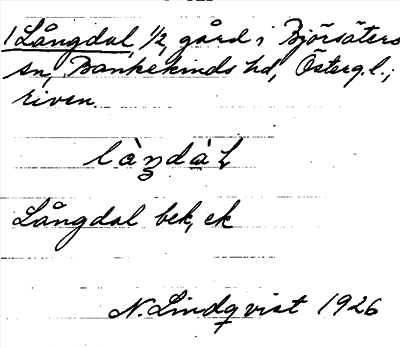 1 Långdal, 1/2, gård i Björsäters
sn, Bankekinds hd, Österg.l.;
riven.
làŋdàL
Långdal bek, ek
N. Lindqvist 1926